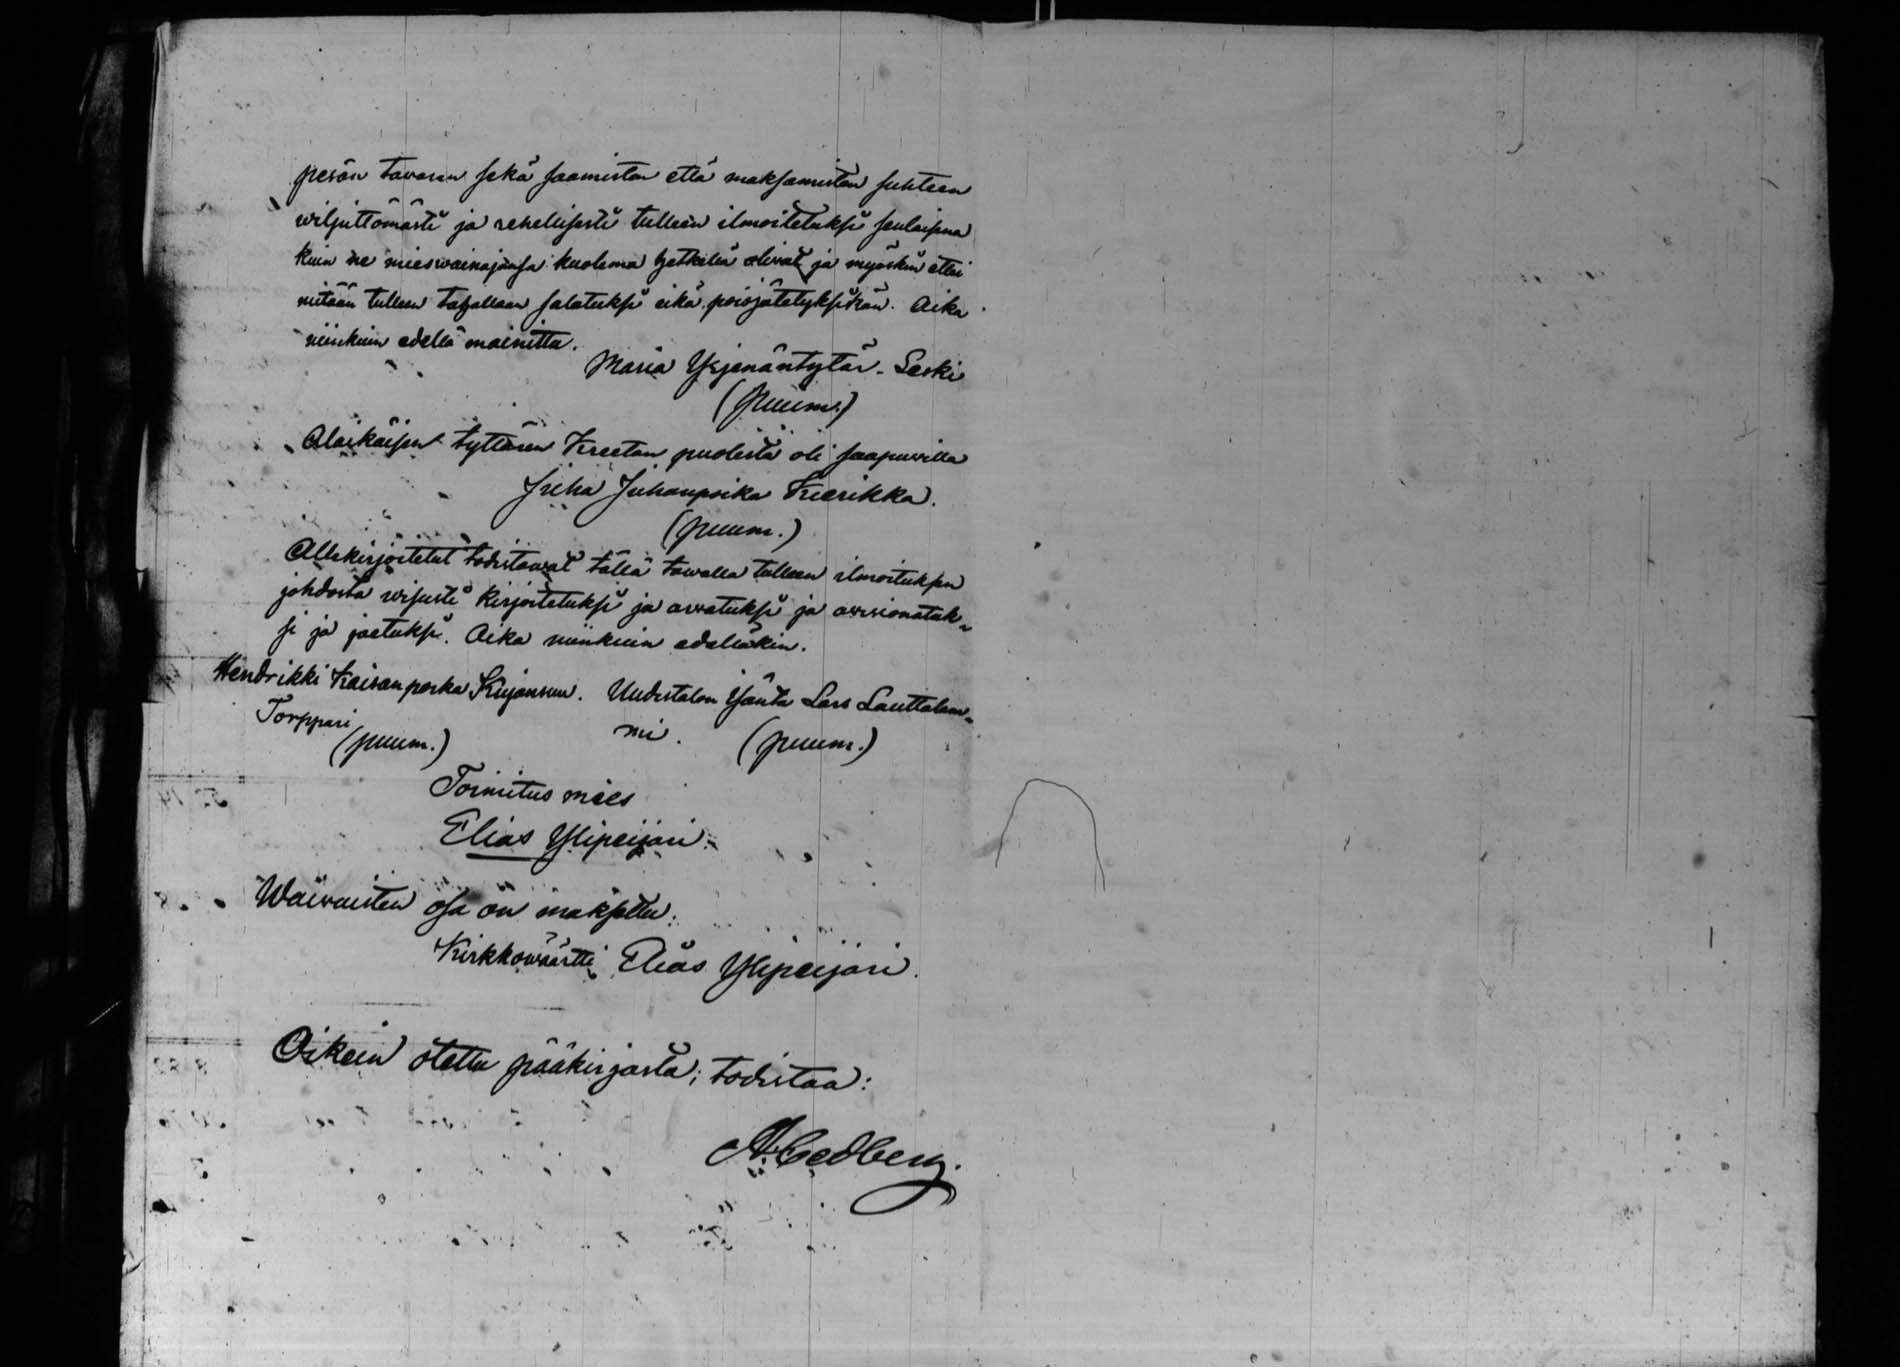 pesän tavaran sekä saamistan että maksamistan suhteen
wilpittömästi ja rehellisesti tulleen ilmoitetuksi senlaisena
kuin ne mieswainajansa kuolema hetkellä oliwat ja myöskin ettei
mitään tulleen tahallaan salatuksi eikä poisjätetyksikän. Aika
niinkuin edellä mainittu.
Maria Yrjenäntytär. Leski
(puum.)
Alaikäisen tyttären Kreetan puolesta oli saapuwilla
Juha Juhanpoika Kierikka.
(puum.)
Allekirjoitetut todistawat tällä tawalla tulleen ilmoituksen
johdosta wisusti kirjoitetuksi ja arwatuksi ja
si ja jaetuksi. Aika niinkuin edelläkin.
Hendrikki Kaisanpoika Kujansuu. Uudistalon Isäntä Lars Lauttalam-
Torppari mi.
(puum.) (puum.)
Toimitus mies
Elias Ylipeijari.
Waiwaisten osa on maksettu.
Kirkkowäärtti Elias Ylipeijari.
Oikein otettu pääkirjasta; todistaa:
A. Cedberg.